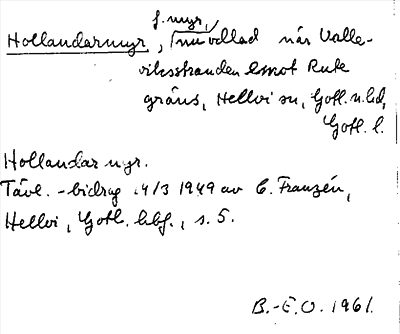 f. myr,
Hollandarmyr, nu odlad när Valle-
viksstranden emot Rute
gräns, Hellvi sn, Gotl. n. hd,
Gotl. l.
Hollandar myr.
Tävl.-bidrag 4/3 1949 av C. Franzén,
Hellvi, Gotl. hbf., s. 5.
B.-E. O. 1961.